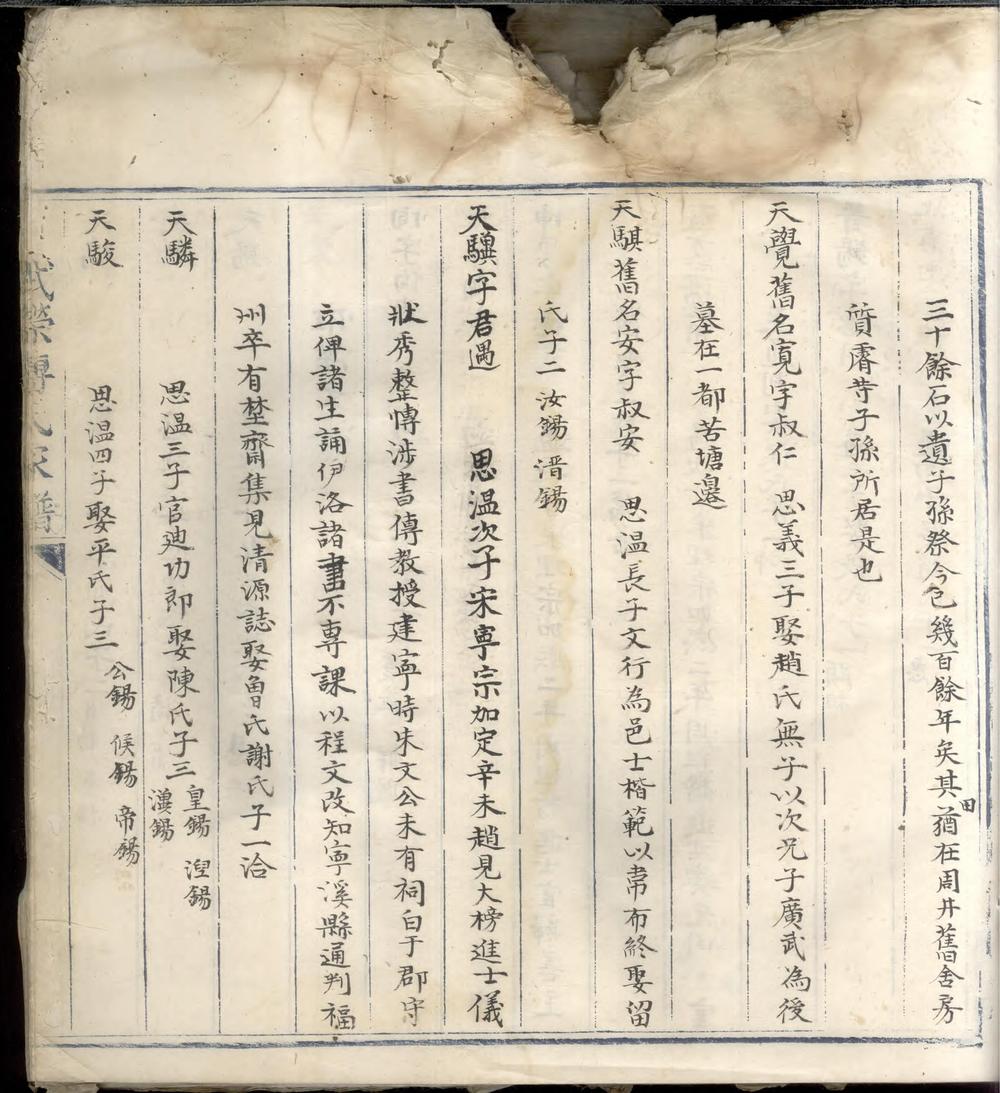 三十餘石以遺子孫祭今已幾百餘年矣其田猶在周井舊舍房
質膚等子孫所居是也
天覺舊名寬字叔仁 思義三子娶趙氏無子以次兄子廣武為後
墓在一都苦塘邊
天騏舊名安字叔安 思温長子文行為邑士楷範以韋布終娶留
氏子二 汝錫 溍錫
天驥字君遇 思温次子宋寧宗加定辛未趙見大榜進士儀
狀秀整愽涉書傳教授建寧時朱文公未有祠白于郡守
立俾諸生誦伊洛諸書不専課以程文改知寧溪縣通判福
州卒有埜齋集見清源誌娶魯氏謝氏子一洽
天驎 思温三子官廸功郎娶陳氏子三 皇錫 湼錫
漢錫
天駿 思温四子娶平氏子三 公錫 候錫 帝錫
氏家譜